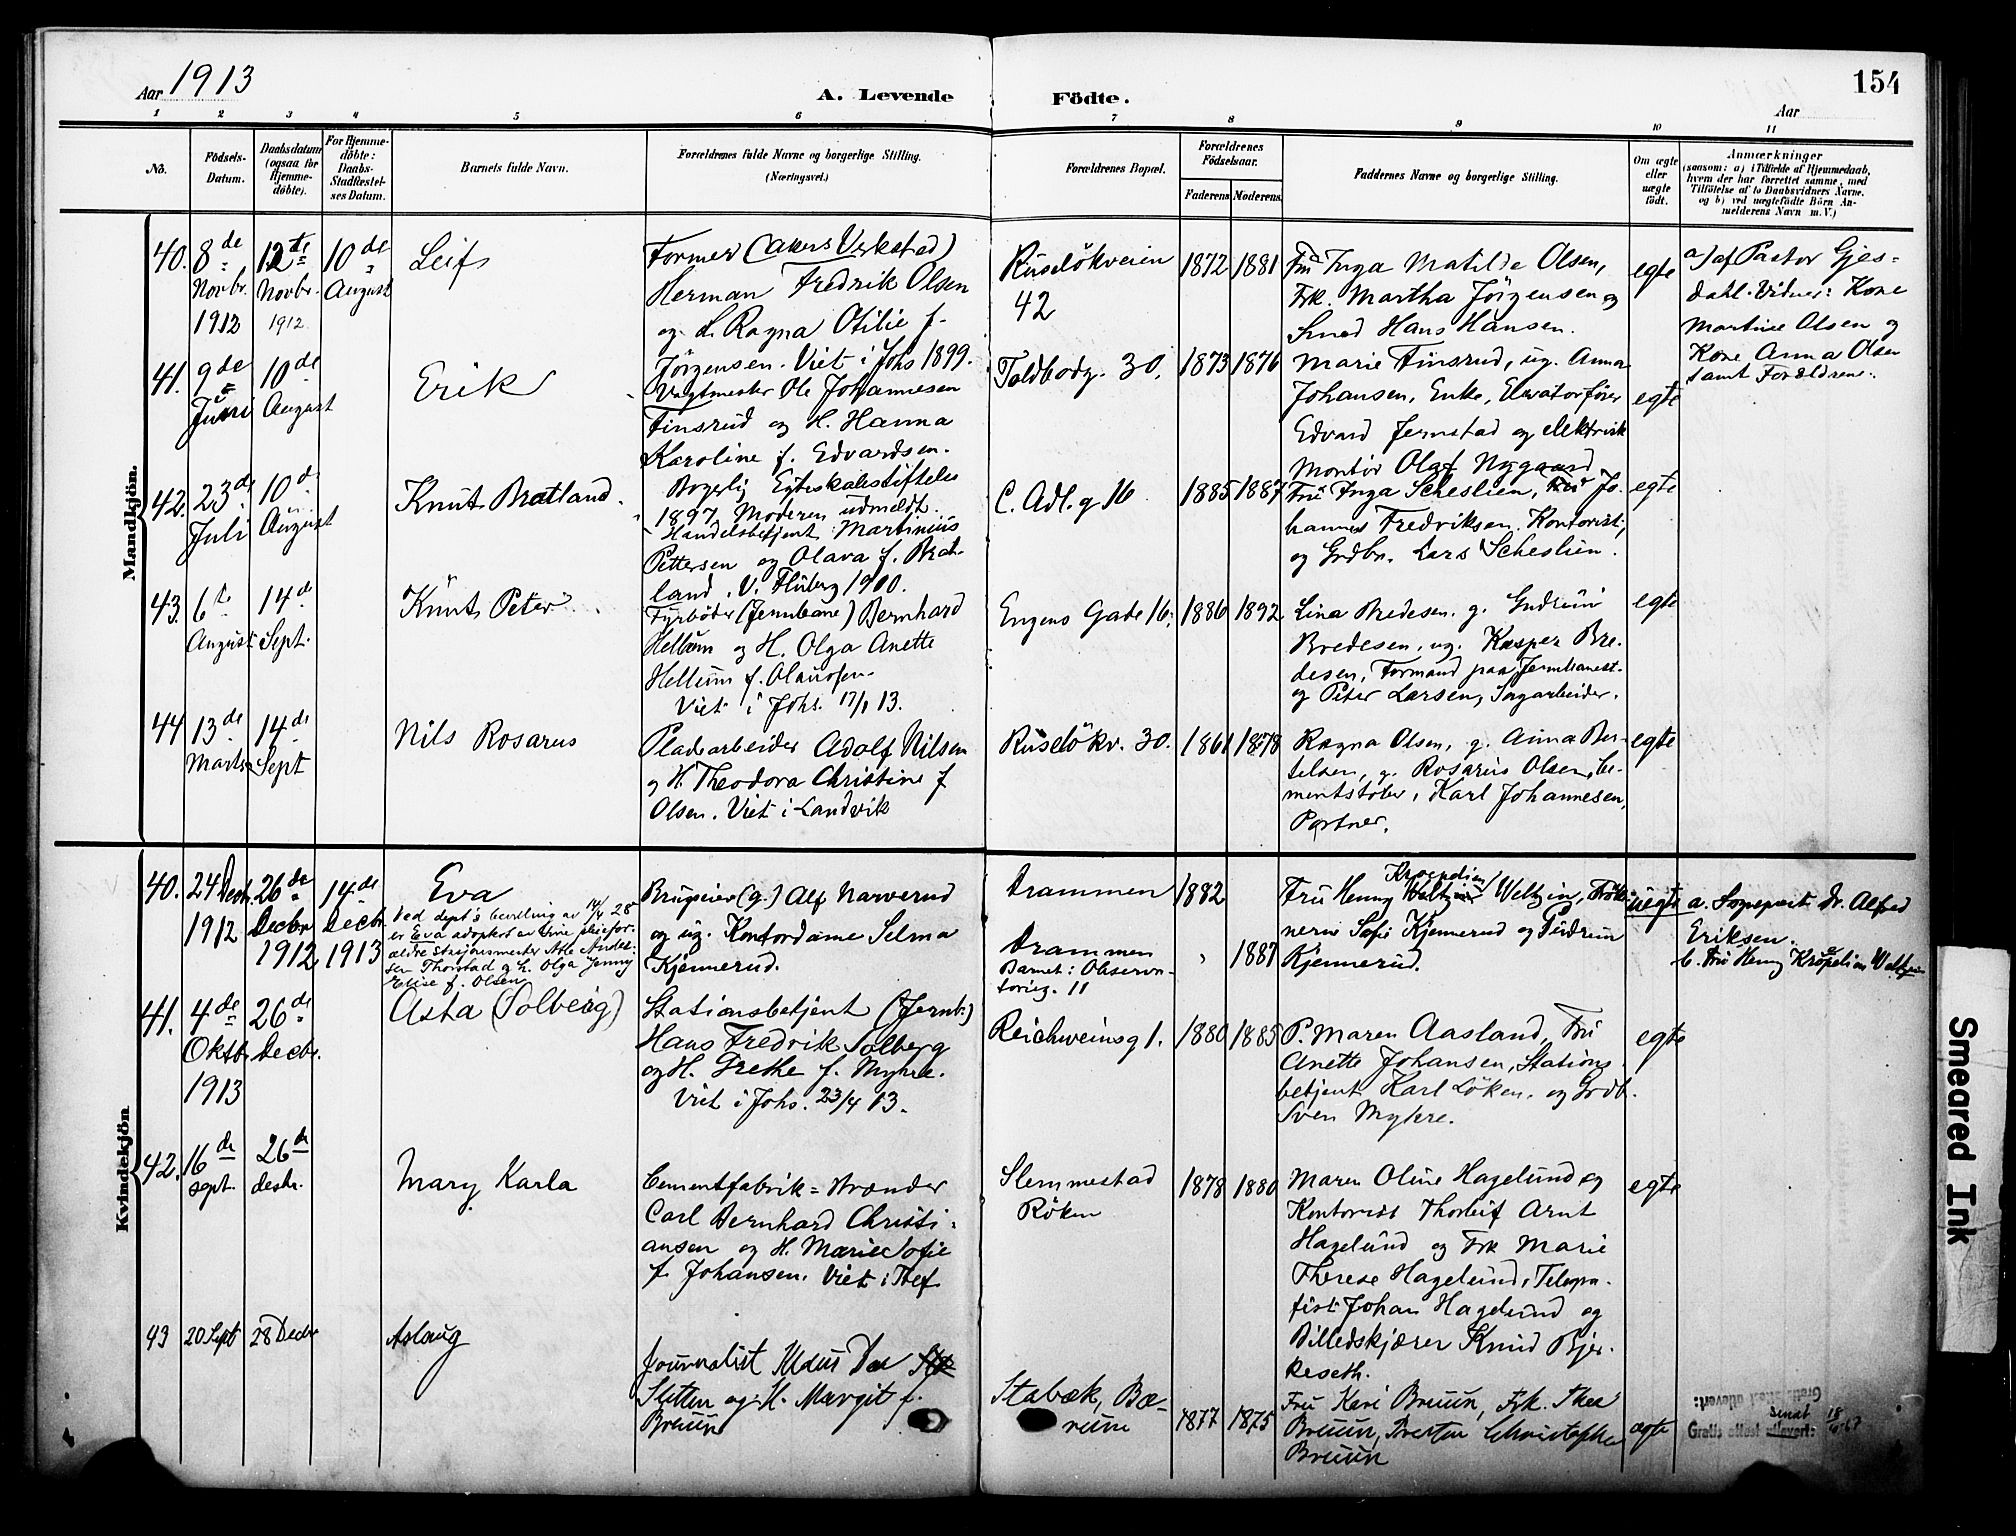 Aar 1913
A. Levende
Födte.
154
Aar
1 2 3 4 5 6 7 8 9 10 11
No.
Födsels-
Datum.
Daabsdatum
(ogsaa for
Hjemme-
döbte).
For Hjemme-
döbte:
Daabs-
Stadfæstel-
ses Datum.
Barnets fulde Navn.
Forældrenes fulde Navne og borgerlige Stilling.
(Næringsvei.)
Forældrenes Bopæl.
Forældrenes
Födselsaar.
Faderens
Moderens
Faddernes Navne og borgerlige Stilling.
Om ægte
eller
uægte
født.
Anmærkninger
(saasom: a) i Tilfælde af Hjemmedaab,
hvem der har forrettet samme, med
Tilföielse af to Daabsvidners Navne,
og b) ved uægtefödte Börn An-
melderens Navn m. V.)
Mandkjön.
40.
8de
Novbr.
1912
12te
Novbr.
1912
10de
August
Leif
Former (Akers Verksted)
Herman Fredrik Olsen
og L. Ragna Otilie f.
Jörgensen. Viet i Johs 1899.
Ruselökveien
42
1872
1881
Fru Inga Matilde Olsen,
Frk. Martha Jörgensen og
Smed Hans Hansen.
egte
a) af Pastor Gjes-
dahl. Vidner: Kone
Martine Olsen og
Kone Anna Olsen
samt Forældrene.
41.
9de
Juni
10de
August
Erik
Vagtmester Ole Johannesen
Finsrud og H. Hanna
Karoline f. Edvardsen.
Borgerlig Egteskabsstiftelse
1897. Moderen udmeldt.
Toldbodg. 30.
1873
1876
Marie Finsrud, ug. Anna
Johansen, Enke, Elevatorförer
Edvard Jernstad og elektrisk
Montör Olaf Nygaard
egte
42.
23de
Juli
10de
August
Knut Bratland.
Handelsbetjent Martinius
Pettersen og Olava f. Brat-
land. V. Fluberg 1910.
C. Adl. g 16
1885
1887
Fru Inga Scheslien, Fru Jo-
hanne Fredriksen. Kontorist,
og Grdbr. Lars Scheslien.
egte
43.
6te
August
14de
Sept.
Knut Peter
Fyrböder (Jernbane) Bernhard
Hellum og H. Olga Anette
Hellum f. Olausen.
Viet i Johs. 17/1 13.
Engens Gade 16.
1886
1892
Lina Bredesen. g. Gudrun
Bredesen, ug. Kasper Bre-
desen, Formand paa Jernbanest.
og Peter Larsen, Sagarbeider.
egte
44
13de
Marts
14de
Sept
Nils Rosarus
Pladearbeider Adolf Nilsen
og H. Theodora Christine f
Olsen. Viet i Landvik
Ruselökv. 30.
1861
1878
Ragna Olsen, g. Anna Ber-
telsen, g. Rosarius Olsen, Ce-
mentstöber, Karl Johannesen,
Portner.
egte
Kvindekjön.
40.
24 Decbr.
1912
26de
Decbr
1912
14de
Decbr.
1913
Eva
Ved dept's bevilling av 14/4 28
er Eva adoptert av sine pleiefor-
ældre Stasjonsmester Atle Andre-
sen Thorstad og h. Olga Jenny
Elise f. Olsen
Brugseier (g.) Alf Narverud
og ug. Kontordame Selma
Kjennerud.
Drammen
Drammen
Barnet: Observa-
torieg. 11
1882
1887
Fru Henny Kroepelien Weltzien,
nerne Sofie Kjennerud og Gudrun
Kjennerud.
uegte
a. Sognepræst Dr. Alfred
Eriksen.
b. Fru Henny Kröpelien Weltzien
41.
4de
Oktb.
1913
26de
Decbr.
Asta (Solberg)
Stationsbetjent (Jernb.)
Hans Fredrik Solberg
og H. Grethe f. Myhre.
Viet i Johs. 23/4 13.
Reichweinsg 1.
1880
1885
P. Maren Aasland, Fru
Anette Johansen, Stations
betjent Karl Löken. og Grdb.
Sven Myhre.
egte
42.
16de
sept.
26de
desbr.
Mary Karla
Cementfabrik=brænder
Carl Bernhard Christi-
ansen og H. Marie Sofie
f. Johansen. Viet i Tref.
Slemmestad
Röken
1878
1880
Maren Oline Hagelund og
Kontorist Thorleif Arnt
Hagelund og Frk Marie
Therese Hagelund, Telegra-
fist Johan Hagelund og
Billedskjærer Knud Bjer-
keseth.
egte
43
20 Sept
28 Decbr
Aslaug
Journalist Klaus
Sletten og H. Margit f.
Bruun
Stabæk, Bæ-
rum
1877
1875
Fru Kari Bruun, Frk. Thea
Bruun, Pastor Christopher
Bruun
ægte
Gratis attest utlevert:
sendt
Gratis attest utlevert: 18/10-67
Smeared Ink